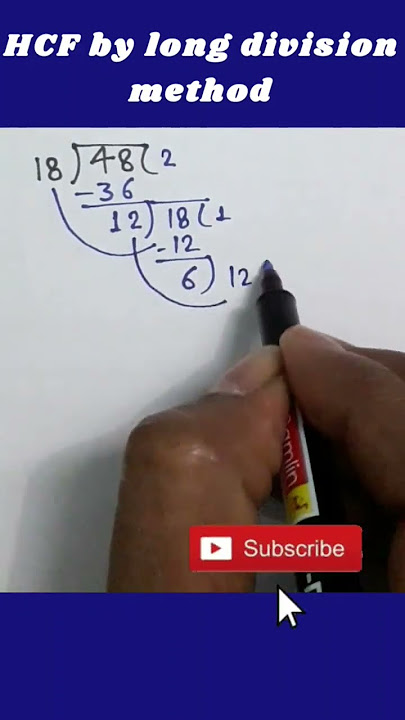 HCF by long division
method
18)48(2
-36
12)18(1
-12
6)12
Subscribe